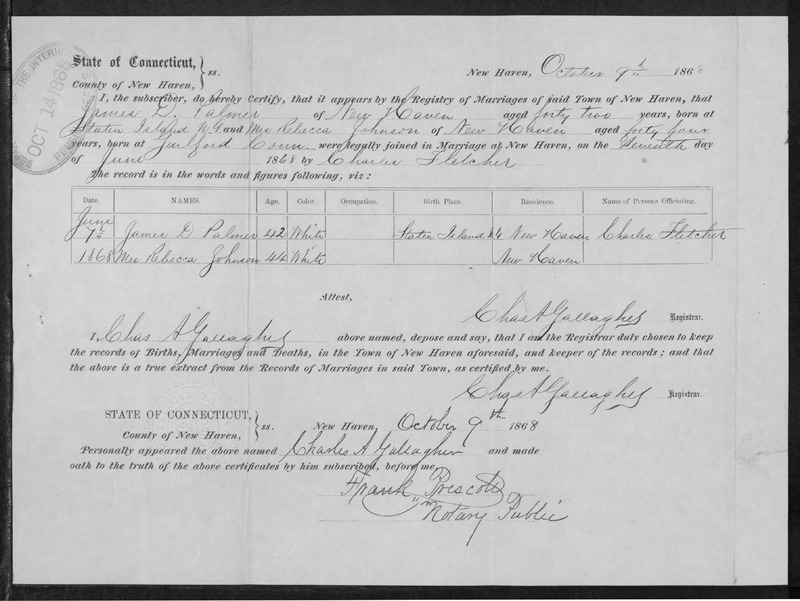 State of Connecticut,
County of New Haven, } ss.
New Haven, October 9th 1868
OF THE INTERIOR
OCT 14 1868
I, the subscriber, do hereby Certify, that it appears by the Registry of Marriages of said Town of New Haven, that
James D. Palmer of New Haven aged forty two years, born at
Staten Island N.Y. and Mrs Rebecca Johnson of New Haven aged forty four
years, born at Guilford Conn were legally joined in Marriage at New Haven, on the Seventh day
of June 1868 by Charles Fletcher
The record is in the words and figures following, viz:
Date. NAMES. Age. Color. Occupation. Birth Place. Residence. Name of Persons Officiating.
June
7th James D Palmer 42 White Staten Island N.Y New Haven Charles Fletcher
1868 Mrs Rebecca Johnson 44 White New Haven
Attest,
Chas A Gallagher Registrar.
I, Chas A Gallagher above named, depose and say, that I am the Registrar duly chosen to keep
the records of Births, Marriages and Deaths, in the Town of New Haven aforesaid, and keeper of the records; and that
the above is a true extract from the Records of Marriages in said Town, as certified by me.
Chas A Gallagher Registrar.
STATE OF CONNECTICUT,
County of New Haven, } ss.
New Haven, October 9th 1868
Personally appeared the above named Charles A Gallagher and made
oath to the truth of the above certificates by him subscribed, before me,
Frank Prescott
Notary Public